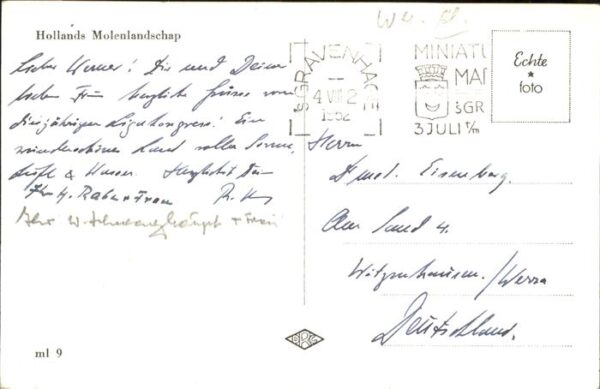 Hollands Molenlandschap
Lieber Werner! Dir und Deiner
lieben Frau herzliche Grüsse vom
diesjährigen Ligakongress! Ein
wunderschönes Land voller Sonne,
Düfte & Wasser. Herzlichst Dein
Rabe + Frau
W. Schwarzhaupt + Frau
ml 9
'sGRAVENHAGE
4 VIII 2
1952
MINIATU
MA
'sGR
3 JULI
Echte
★
foto
Herrn
Dr med. Eisenberg.
Am Sand 4.
Witzenhausen/Werra
Deutschland.